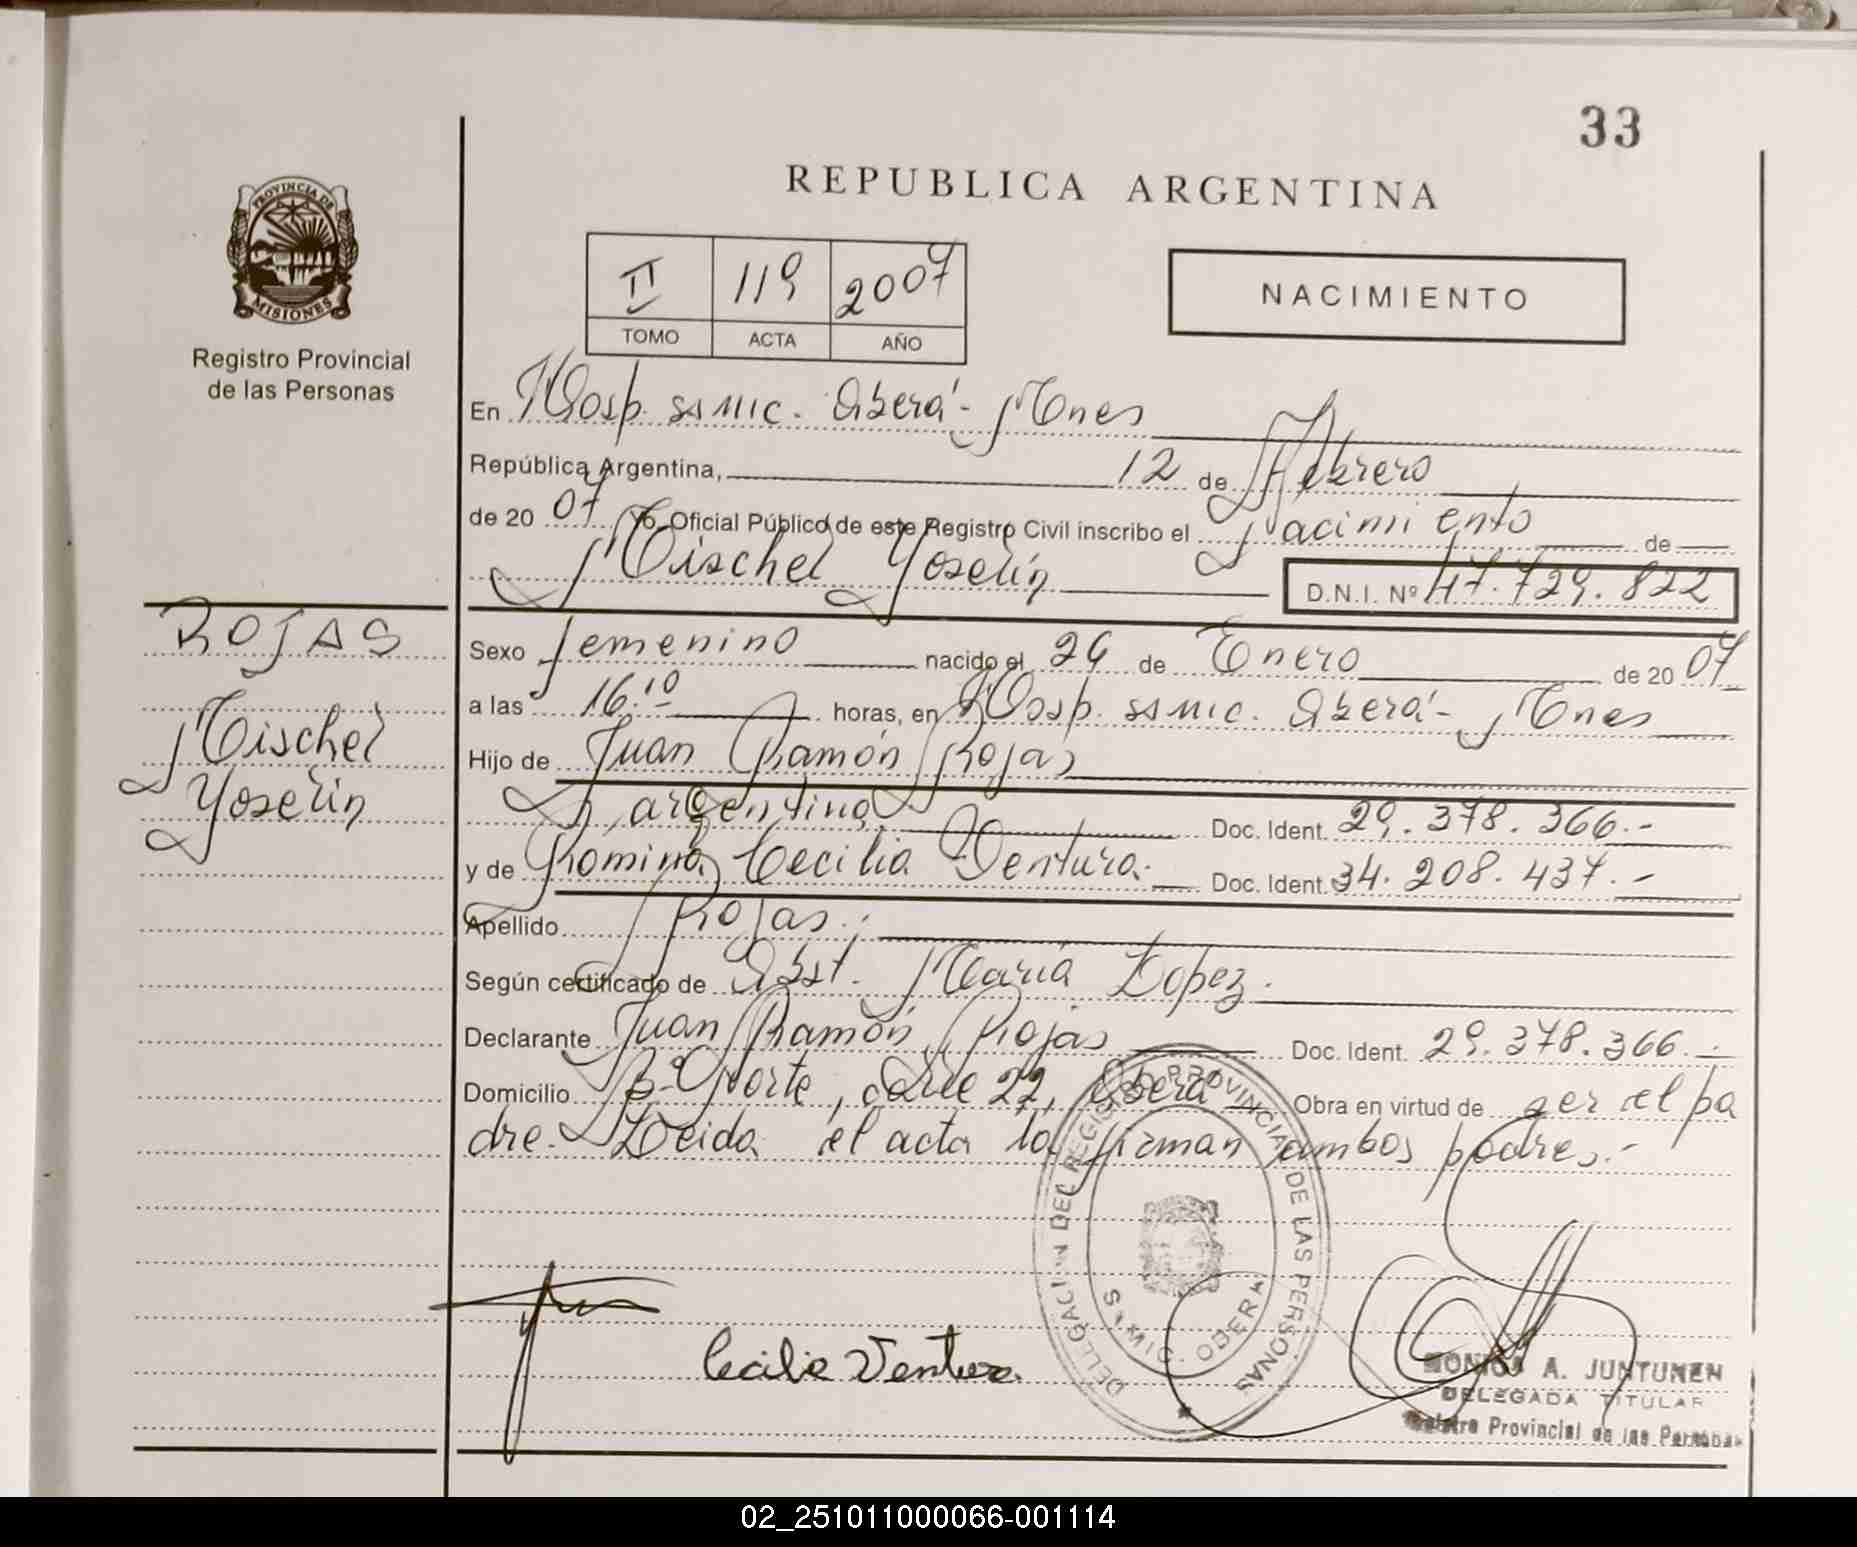 33
REPUBLICA ARGENTINA
PROVINCIA DE
MISIONES
Registro Provincial
de las Personas
II 119 2007
TOMO ACTA AÑO
NACIMIENTO
En Hosp. SAMIC. Oberá - Mnes
República Argentina, 12 de Febrero
de 20 07 Yo, Oficial Público de este Registro Civil inscribo el Nacimiento de
Mischel Yoselin D.N.I. Nº 47.729.822
ROJAS
Mischel
Yoselin
Sexo femenino nacido el 26 de Enero de 20 07
a las 16:10 horas, en Hosp. SAMIC. Oberá - Mnes
Hijo de Juan Ramón Rojas
argentino Doc. Ident. 29.378.366.-
y de Romina Cecilia Ventura. Doc. Ident. 34.208.437.-
Apellido Rojas.
Según certificado de Obst. María Lopez.
Declarante Juan Ramón Rojas Doc. Ident. 29.378.366.-
Domicilio Bº Norte, calle 22, Oberá Obra en virtud de ser el pa
dre. Leida el acta la firman ambos padres.-
DELEGACION DEL REGISTRO PROVINCIAL DE LAS PERSONAS
SAMIC. OBERA
Cecilia Ventura.
MONICA A. JUNTUNEN
DELEGADA TITULAR
Registro Provincial de las Personas
02_251011000066-001114